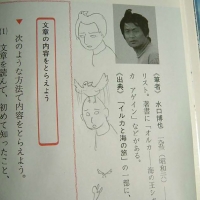 〈筆者〉水口博也
リスト。著書に「オルカ
カ アゲイン」などがある。
〈出典〉「イルカと海の旅」の一部に、
文章の内容をとらえよう
▼次のような方法で内容をとらえよう。
文章を読んで、初めて知ったこと、